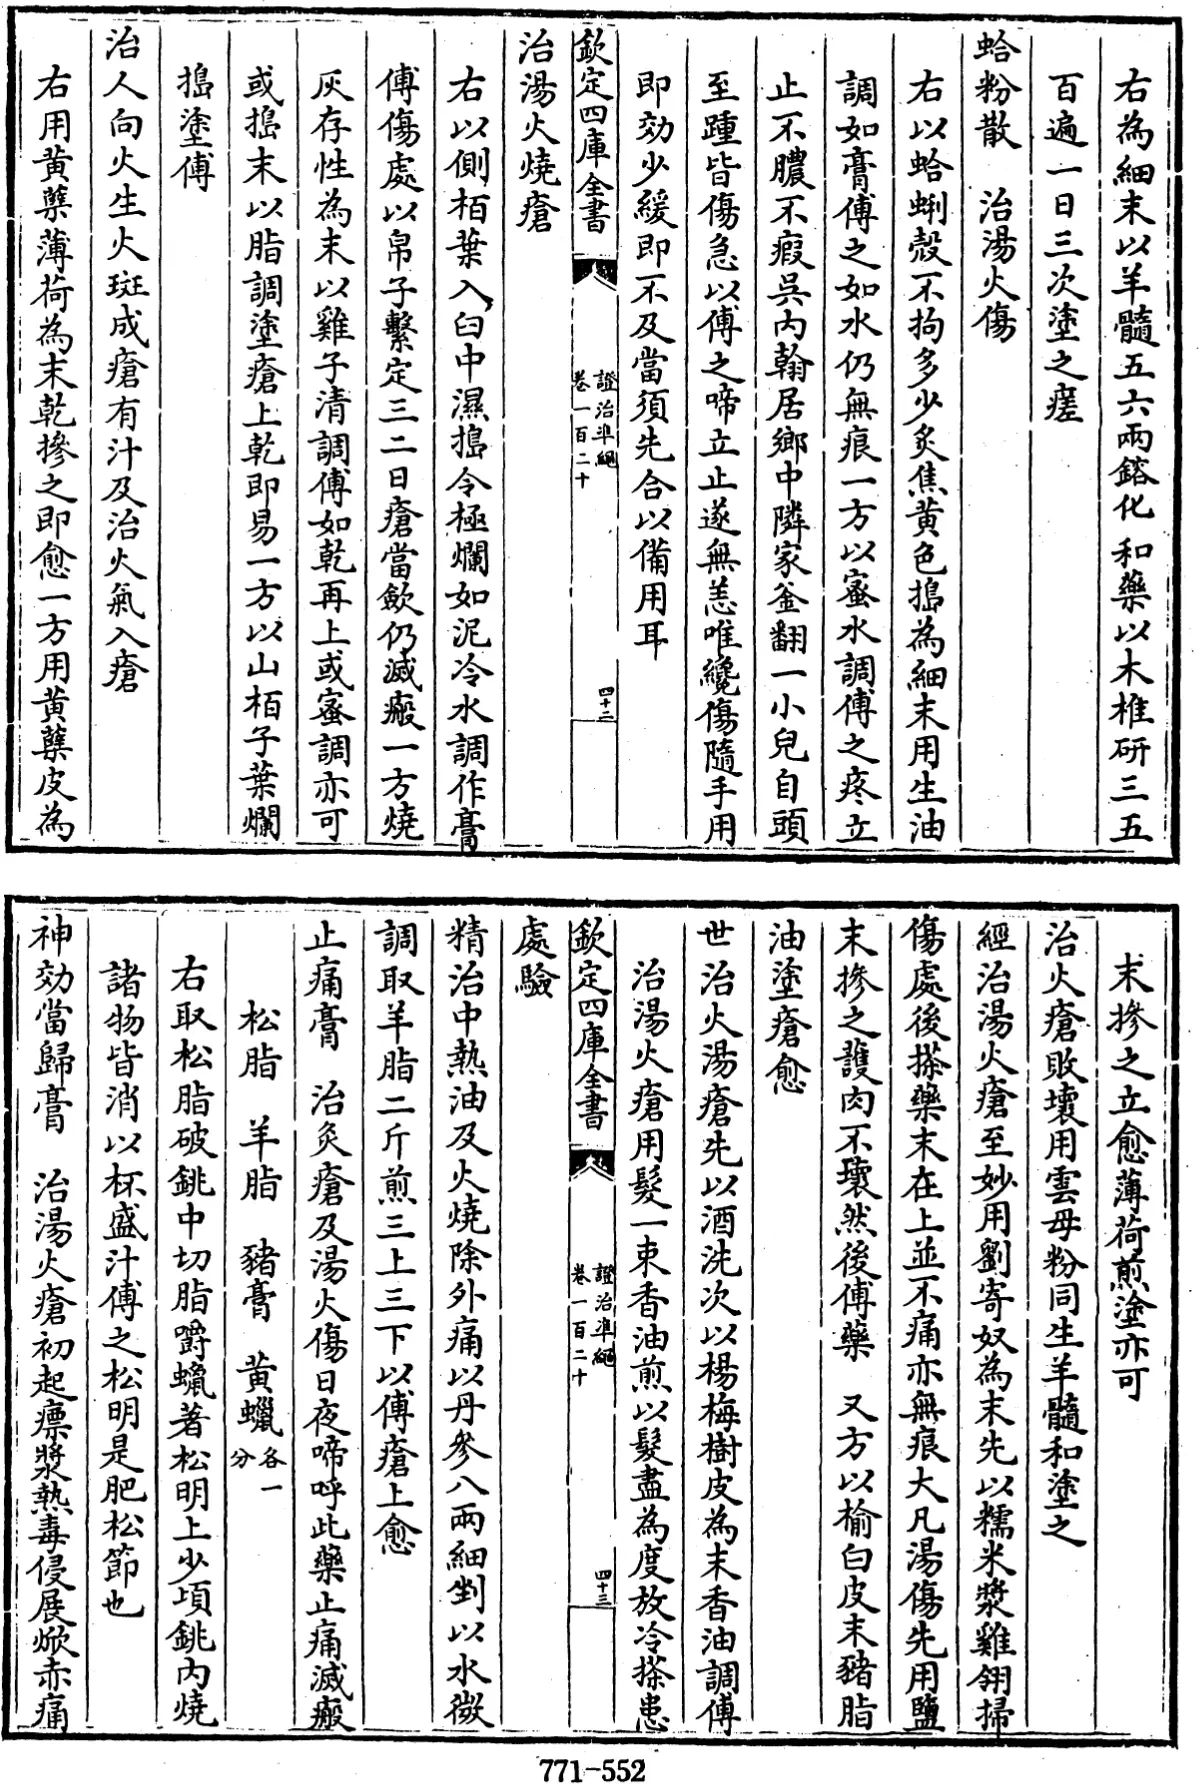 右為細末以羊髓五六兩鎔化和藥以木椎研三五
百遍一日三次塗之瘥
蛤粉散　治湯火傷
右以蛤蜊殼不拘多少炙焦黄色搗為細末用生油
調如膏傅之如氷仍無痕一方以蜜水調傅之疼立
止不膿不瘕吳内翰居鄉中隣家釜翻一小兒自頭
至踵皆傷急以傅之啼立止遂無恙唯纔傷隨手用
即効少緩即不及當須先合以備用耳
欽定四庫全書　證治準繩　卷一百二十　四十二
治湯火燒瘡
右以側栢葉入臼中濕搗令極爛如泥冷水調作膏
傅傷處以帛子繫定三二日瘡當歛仍滅瘢一方燒
灰存性為末以雞子清調傅如乾再上或蜜調亦可
或搗末以脂調塗瘡上乾即易一方以山栢子葉爛
搗塗傅
治人向火生火斑成瘡有汁及治火氣入瘡
右用黄蘗薄荷為末乾摻之即愈一方用黄蘗皮為
末摻之立愈薄荷煎塗亦可
治火瘡敗壞用雲母粉同生羊髓和塗之
經治湯火瘡至妙用劉寄奴為末先以糯米漿雞翎掃
傷處後搽藥末在上並不痛亦無痕大凡湯傷先用鹽
末摻之護肉不壞然後傅藥　又方以榆白皮末豬脂
油塗瘡愈
世治火湯瘡先以酒洗次以楊梅樹皮為末香油調傅
治湯火瘡用髮一束香油煎以髮盡為度放冷搽患
欽定四庫全書　證治準繩　卷一百二十　四十三
處驗
精治中熱油及火燒除外痛以丹參八兩細剉以水微
調取羊脂二斤煎三上三下以傅瘡上愈
止痛膏　治灸瘡及湯火傷日夜啼呼此藥止痛滅瘢
松脂　羊脂　豬膏　黄蠟各一分
右取松脂破銚中切脂嚼蠟著松明上少項銚内燒
諸物皆消以杯盛汁傅之松明是肥松節也
神効當歸膏　治湯火瘡初起瘭漿熱毒侵展焮赤痛
771-552